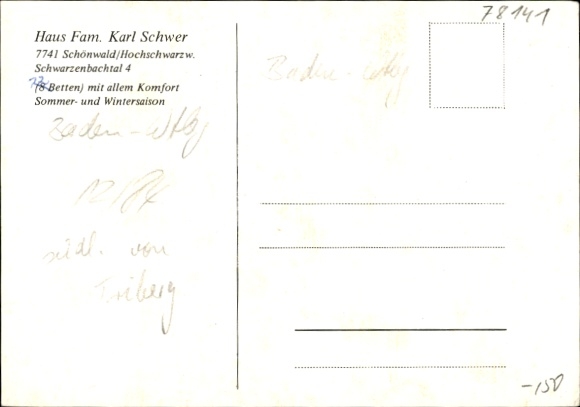 Haus Fam. Karl Schwer
7741 Schönwald/Hochschwarzw.
Schwarzenbachtal 4
(8 Betten) mit allem Komfort
Sommer- und Wintersaison
Baden-Wtbg
südl. von
Triberg
78141
Baden-Wtbg
-150